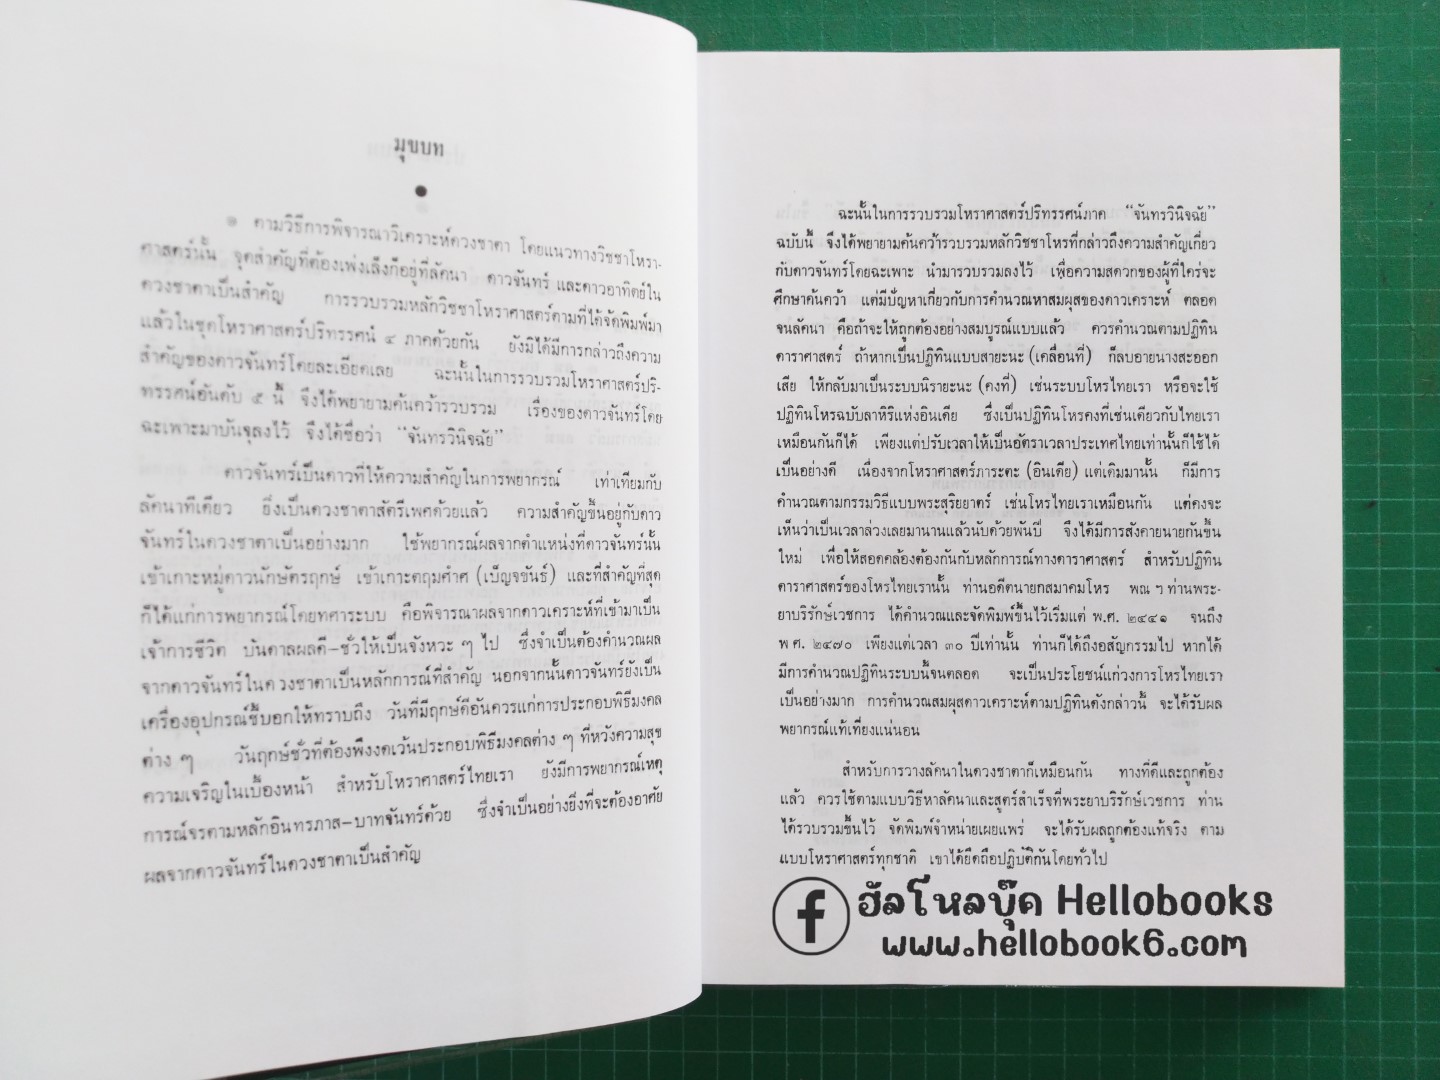 มุขบท
๑ ตามวิธีการพิจารณาวิเคราะห์ดวงชาตา โดยแนวทางวิชชาโหรา-
ศาสตร์นั้น จุดสำคัญที่ต้องเพ่งเล็งก็อยู่ที่ลัคนา ดาวจันทร์ และดาวอาทิตย์ใน
ดวงชาตาเป็นสำคัญ การรวบรวมหลักวิชชาโหราศาสตร์ตามที่ได้จัดพิมพ์มา
แล้วในชุดโหราศาสตร์ปริทรรศน์ ๔ ภาคด้วยกัน ยังมิได้มีการกล่าวถึงความ
สำคัญของดาวจันทร์โดยละเอียดเลย ฉะนั้นในการรวบรวมโหราศาสตร์ปริ-
ทรรศน์อันดับ ๕ นี้ จึงได้พยายามค้นคว้ารวบรวม เรื่องของดาวจันทร์โดย
ฉะเพาะมาบันจุลงไว้ จึงได้ชื่อว่า “จันทรวินิจฉัย”
ดาวจันทร์เป็นดาวที่ให้ความสำคัญในการพยากรณ์ เท่าเทียมกับ
ลัคนาทีเดียว ยิ่งเป็นดวงชาตาสัตรีเพศด้วยแล้ว ความสำคัญขึ้นอยู่กับดาว
จันทร์ในดวงชาตาเป็นอย่างมาก ใช้พยากรณ์ผลจากตำแหน่งที่ดาวจันทร์นั้น
เข้าเกาะหมู่ดาวนักษัตรฤกษ์ เข้าเกาะตฤมศำศ (เบ็ญจขันธ์) และที่สำคัญที่สุด
ก็ได้แก่การพยากรณ์โดยทศาระบบ คือพิจารณาผลจากดาวเคราะห์ที่เข้ามาเป็น
เจ้าการชีวิต บันดาลผลดี–ชั่วให้เป็นจังหวะ ๆ ไป ซึ่งจำเป็นต้องคำนวณผล
จากดาวจันทร์ในดวงชาตาเป็นหลักการณ์ที่สำคัญ นอกจากนั้นดาวจันทร์ยังเป็น
เครื่องอุปกรณ์ชี้บอกให้ทราบถึง วันที่มีฤกษ์ดีอันควรแก่การประกอบพิธีมงคล
ต่าง ๆ วันฤกษ์ชั่วที่ต้องพึงงดเว้นประกอบพิธีมงคลต่าง ๆ ที่หวังความสุข
ความเจริญในเบื้องหน้า สำหรับโหราศาสตร์ไทยเรา ยังมีการพยากรณ์เหตุ
การณ์จรตามหลักอินทรภาส–บาทจันทร์ด้วย ซึ่งจำเป็นอย่างยิ่งที่จะต้องอาศัย
ผลจากดาวจันทร์ในดวงชาตาเป็นสำคัญ
ฉะนั้นในการรวบรวมโหราศาสตร์ปริทรรศน์ภาค “จันทรวินิจฉัย”
ฉบับนี้ จึงได้พยายามค้นคว้ารวบรวมหลักวิชชาโหรที่กล่าวถึงความสำคัญเกี่ยว
กับดาวจันทร์โดยฉะเพาะ นำมารวบรวมลงไว้ เพื่อความสดวกของผู้ที่ใคร่จะ
ศึกษาค้นคว้า แต่มีปัญหาเกี่ยวกับการคำนวณหาสมผุสของดาวเคราะห์ ตลอด
จนลัคนา คือถ้าจะให้ถูกต้องอย่างสมบูรณ์แบบแล้ว ควรคำนวณตามปฏิทิน
ดาราศาสตร์ ถ้าหากเป็นปฏิทินแบบสายะนะ (เคลื่อนที่) ก็ลบอายนางสะออก
เสีย ให้กลับมาเป็นระบบนิรายะนะ (คงที่) เช่นระบบโหรไทยเรา หรือจะใช้
ปฏิทินโหรฉบับลาหิริแห่งอินเดีย ซึ่งเป็นปฏิทินโหรคงที่เช่นเดียวกับไทยเรา
เหมือนกันก็ได้ เพียงแต่ปรับเวลาให้เป็นอัตราเวลาประเทศไทยเท่านั้นก็ใช้ได้
เป็นอย่างดี เนื่องจากโหราศาสตร์ภาระตะ (อินเดีย) แต่เดิมมานั้น ก็มีการ
คำนวณตามกรรมวิธีแบบพระสุริยยาตร์ เช่นโหรไทยเราเหมือนกัน แต่คงจะ
เห็นว่าเป็นเวลาล่วงเลยมานานแล้วนับด้วยพันปี จึงได้มีการสังคายนายกันขึ้น
ใหม่ เพื่อให้สอดคล้องต้องกันกับหลักการณ์ทางดาราศาสตร์ สำหรับปฏิทิน
ดาราศาสตร์ของโหรไทยเรานั้น ท่านอดีตนายกสมาคมโหร พณ ฯ ท่านพระ-
ยาบริรักษ์เวชการ ได้คำนวณและจัดพิมพ์ขึ้นไว้เริ่มแต่ พ.ศ. ๒๔๔๑ จนถึง
พ ศ. ๒๔๗๐ เพียงแต่เวลา ๓๐ ปีเท่านั้น ท่านก็ได้ถึงอสัญกรรมไป หากได้
มีการคำนวณปฏิทินระบบนี้จนตลอด จะเป็นประโยชน์แก่วงการโหรไทยเรา
เป็นอย่างมาก การคำนวณสมผุสดาวเคราะห์ตามปฏิทินดังกล่าวนี้ จะได้รับผล
พยากรณ์แท้เที่ยงแน่นอน
สำหรับการวางลัคนาในดวงชาตาก็เหมือนกัน ทางที่ดีและถูกต้อง
แล้ว ควรใช้ตามแบบวิธีหาลัคนาและสูตร์สำเร็จที่พระยาบริรักษ์เวชการ ท่าน
ได้รวบรวมขึ้นไว้ จัดพิมพ์จำหน่ายเผยแพร่ จะได้รับผลถูกต้องแท้จริง ตาม
แบบโหราศาสตร์ทุกชาติ เขาได้ยึดถือปฏิบัติกันโดยทั่วไป
f ฮัลโหลบุ๊ค Hellobooks
www.hellobook6.com